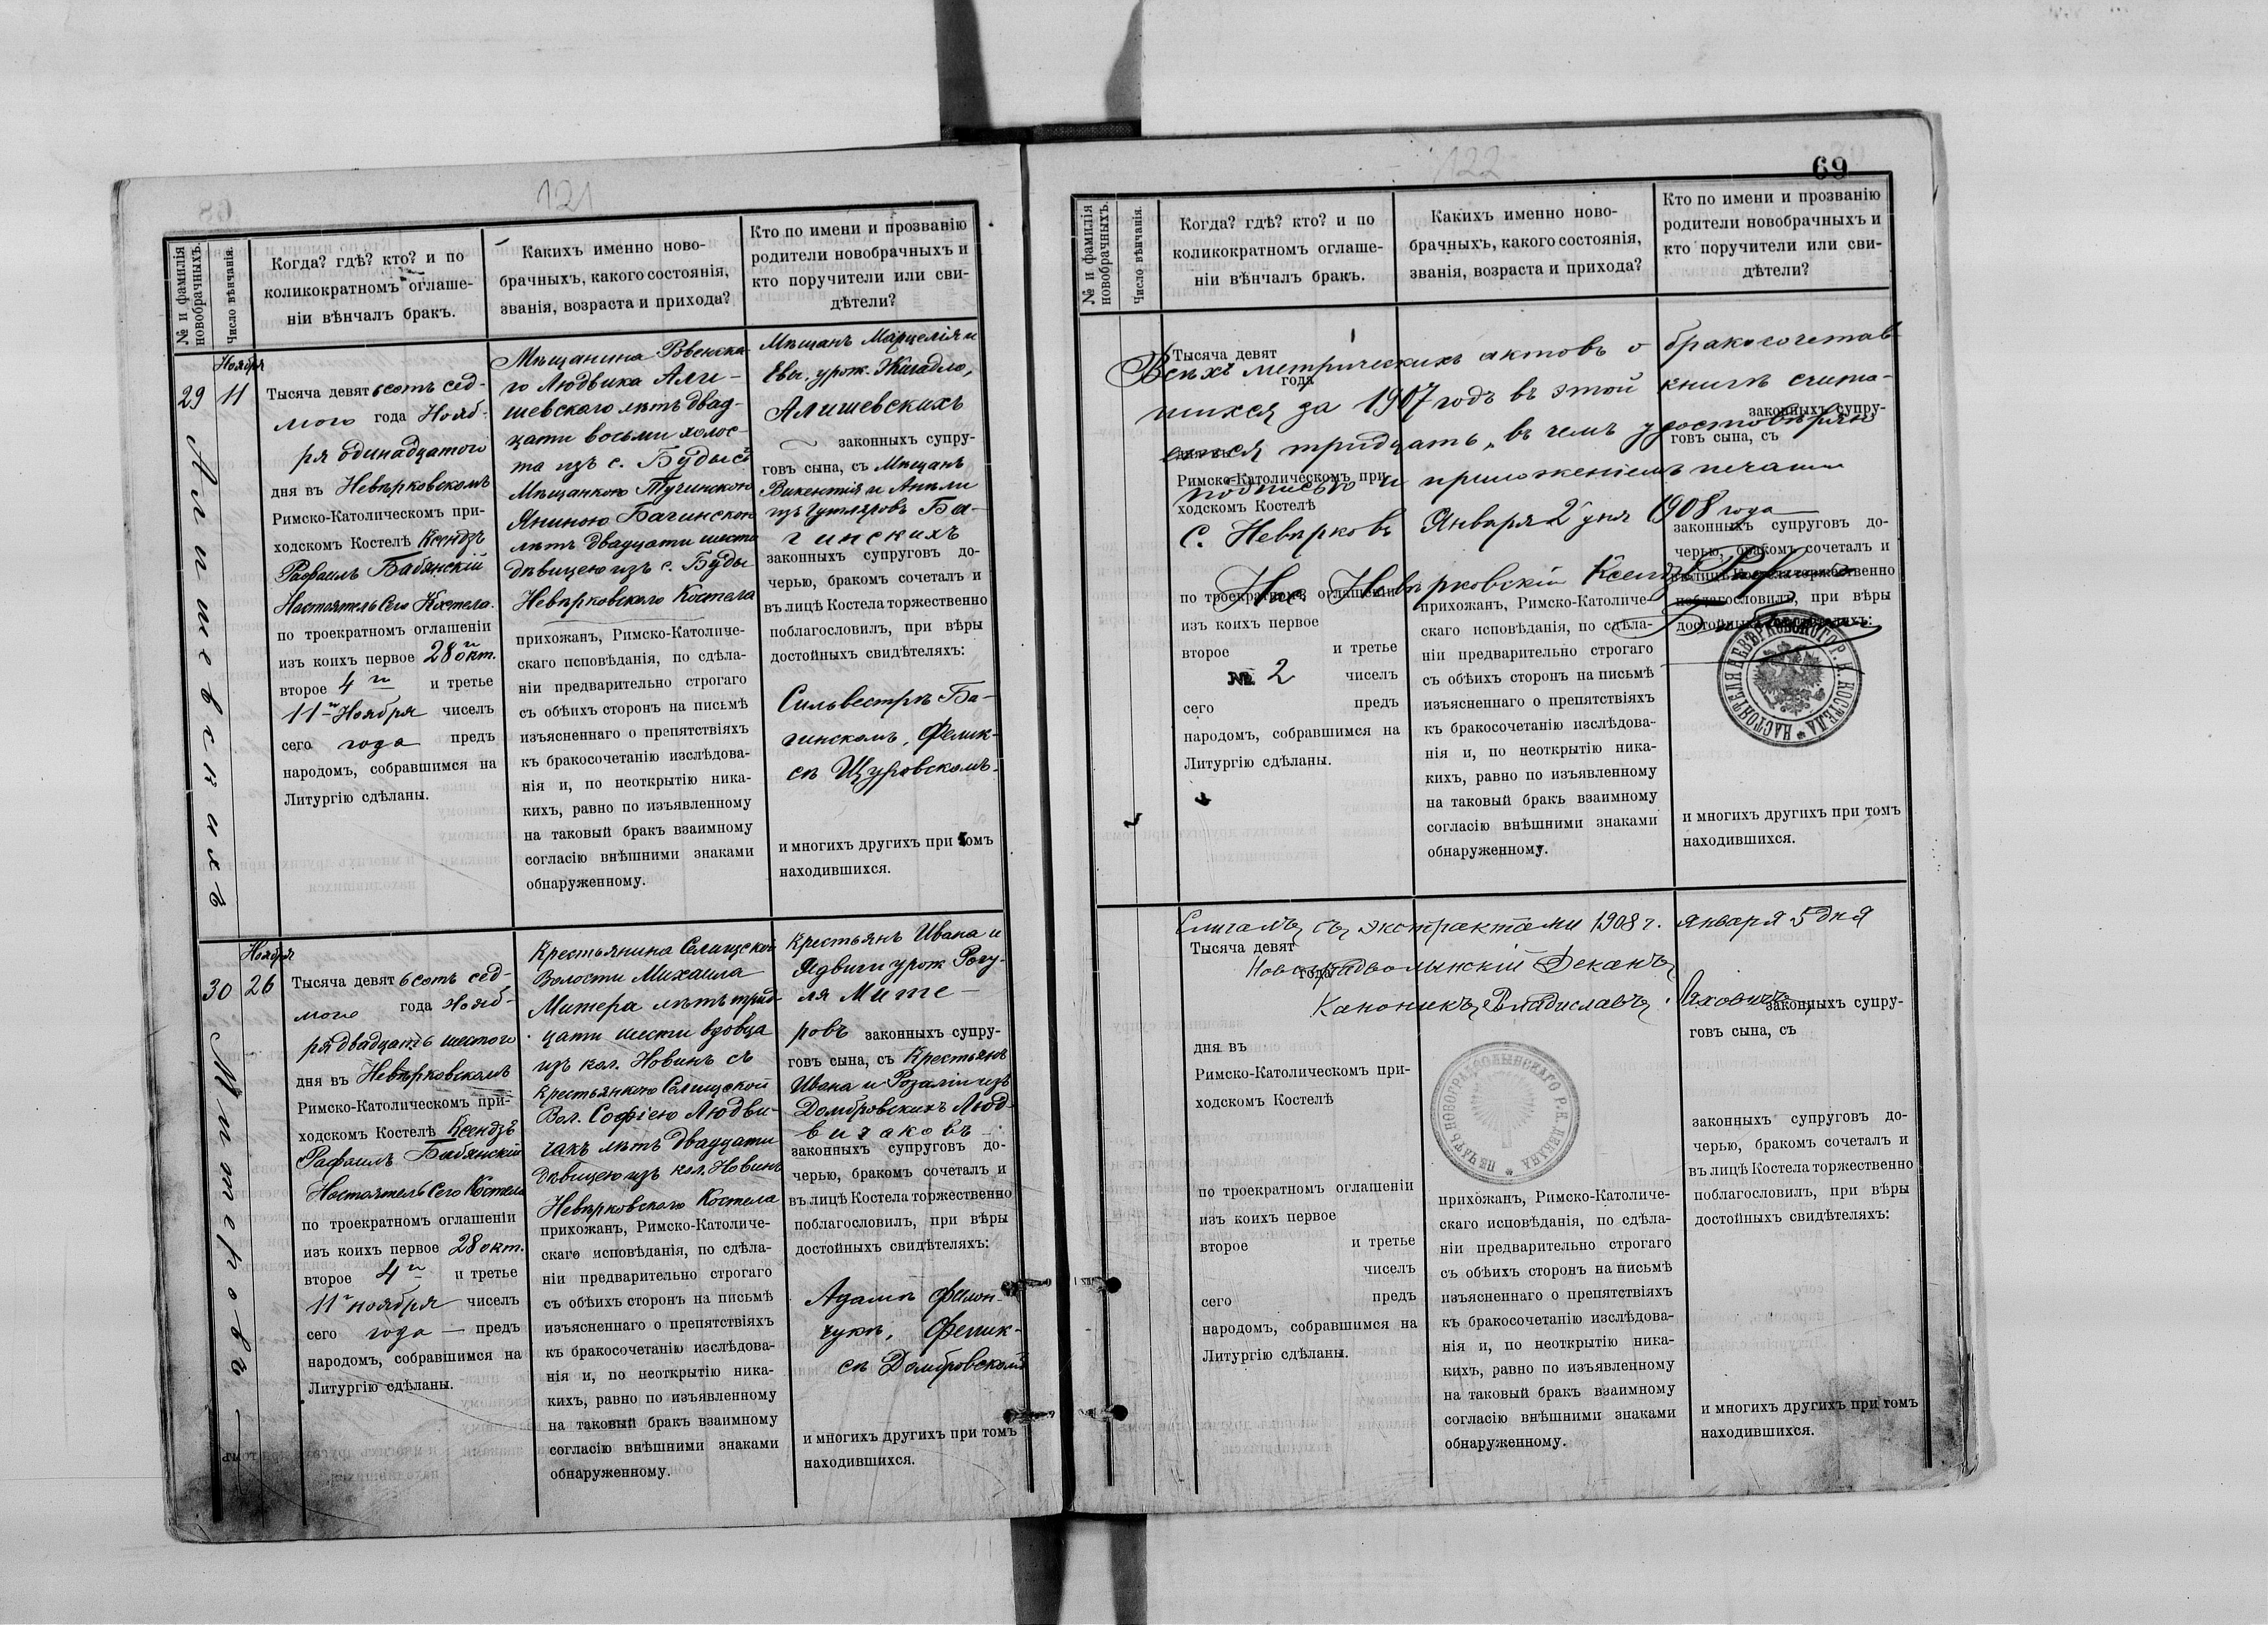 121
№ и фамилія
новобрачныхъ.
Число вѣнчанія.
Когда? гдѣ? кто? и по
коликократномъ оглаше-
ніи вѣнчалъ бракъ.
Какихъ именно ново-
брачныхъ, какого состоянія,
званія, возраста и прихода?
Кто по имени и прозванію
родители новобрачныхъ и
кто поручители или сви-
дѣтели?
29
Алишевскихъ
Ноября
11
Тысяча девятьсотъ сед-
мого года Нояб-
ря одинадцатого
дня въ Невѣрковскомъ
Римско-Католическомъ при-
ходскомъ Костелѣ Ксендзъ
Рафаилъ Бабянскій
Настоятель Сего Костела.
по троекратномъ оглашеніи
изъ коихъ первое 28 окт.
второе 4 и третье
11 Ноября чиселъ
сего года предъ
народомъ, собравшимся на
Литургію сдѣланы.
Мѣщанина Ровенска-
го Людвика Али-
шевского лѣтъ двад-
цати восьми холос-
та изъ с. Буды съ
Мѣщанкою Тучинскою
Яниною Багинскою
лѣтъ двадцати шести
дѣвицею изъ с. Буды
Невѣрковского Костела
прихожанъ, Римско-Католиче-
скаго исповѣданія, по сдѣла-
ніи предварительно строгаго
съ обѣихъ сторонъ на письмѣ
изъясненнаго о препятствіяхъ
къ бракосочетанію изслѣдова-
нія и, по неоткрытію ника-
кихъ, равно по изъявленному
на таковый бракъ взаимному
согласію внѣшними знаками
обнаруженному.
Мѣщанъ Марцелія и
Евы урож. Жигадло,
Алишевскихъ
законныхъ супру-
говъ сына, съ Мѣщанъ
Викентія и Анели
изъ Гутляровъ Ба-
гинскихъ
законныхъ супруговъ до-
черью, бракомъ сочеталъ и
въ лицѣ Костела торжественно
поблагословилъ, при вѣры
достойныхъ свидѣтеляхъ:
Сильвестрѣ Ба-
гинскомъ, Фелик-
сѣ Щуровскомъ.
и многихъ другихъ при томъ
находившихся.
30
Митеровъ
Ноября
26
Тысяча девятьсотъ сед-
мого года Нояб-
ря двадцать шестого
дня въ Невѣрковскомъ
Римско-Католическомъ при-
ходскомъ Костелѣ Ксендзъ
Рафаилъ Бабянскій
Настоятель Сего Костела
по троекратномъ оглашеніи
изъ коихъ первое 28 окт.
второе 4 и третье
11 ноября чиселъ
сего года предъ
народомъ, собравшимся на
Литургію сдѣланы.
Крестьянина Селищской
Волости Михаила
Митера лѣтъ трид-
цати шести вдовца
изъ кол. Новинъ съ
Крестьянкою Селищской
Вол. Софіею Людви-
чакъ лѣтъ двадцати
дѣвицею изъ кол. Новинъ
Невѣрковского Костела
прихожанъ, Римско-Католиче-
скаго исповѣданія, по сдѣла-
ніи предварительно строгаго
съ обѣихъ сторонъ на письмѣ
изъясненнаго о препятствіяхъ
къ бракосочетанію изслѣдова-
нія и, по неоткрытію ника-
кихъ, равно по изъявленному
на таковый бракъ взаимному
согласію внѣшними знаками
обнаруженному.
Крестьянъ Ивана и
Ядвиги урож. Рогу-
ля Мите-
ровъ законныхъ супру-
говъ сына, съ Крестьянъ
Ивана и Розаліи изъ
Домбровскихъ Люд-
вичаковъ
законныхъ супруговъ до-
черью, бракомъ сочеталъ и
въ лицѣ Костела торжественно
поблагословилъ, при вѣры
достойныхъ свидѣтеляхъ:
Адамѣ Филон-
чукѣ, Фелик-
сѣ Домбровскомъ
и многихъ другихъ при томъ
находившихся.
122
69
№ и фамилія
новобрачныхъ.
Число вѣнчанія.
Когда? гдѣ? кто? и по
коликократномъ оглаше-
ніи вѣнчалъ бракъ.
Какихъ именно ново-
брачныхъ, какого состоянія,
званія, возраста и прихода?
Кто по имени и прозванію
родители новобрачныхъ и
кто поручители или сви-
дѣтели?
Всѣхъ метрическихъ актовъ о бракосочетав-
шихся за 1907 годъ въ этой книгѣ счита-
ется тридцать, въ чемъ удостовѣряю
подписью и приложеніемъ печати
С. Невѣрковъ Января 2 дня 1908 года
Нас. Невѣрковскій Ксендзъ
№ 2
Тысяча девят
года
дня въ
Римско-Католическомъ при-
ходскомъ Костелѣ
по троекратномъ оглашеніи
изъ коихъ первое
второе и третье
чиселъ
сего предъ
народомъ, собравшимся на
Литургію сдѣланы.
прихожанъ, Римско-Католиче-
скаго исповѣданія, по сдѣла-
ніи предварительно строгаго
съ обѣихъ сторонъ на письмѣ
изъясненнаго о препятствіяхъ
къ бракосочетанію изслѣдова-
нія и, по неоткрытію ника-
кихъ, равно по изъявленному
на таковый бракъ взаимному
согласію внѣшними знаками
обнаруженному.
законныхъ супру-
говъ сына, съ
законныхъ супруговъ до-
черью, бракомъ сочеталъ и
въ лицѣ Костела торжественно
поблагословилъ, при вѣры
достойныхъ свидѣтеляхъ:
НАСТОЯТЕЛЯ НЕВѢРКОВСКОГО Р. К. КОСТЕЛА
и многихъ другихъ при томъ
находившихся.
Считалъ съ экстрактами 1908 г. января 5 дня
Новоградволынскій Деканъ
Каноникъ Владиславъ Ляховичъ
Тысяча девят
года
дня въ
Римско-Католическомъ при-
ходскомъ Костелѣ
по троекратномъ оглашеніи
изъ коихъ первое
второе и третье
чиселъ
сего предъ
народомъ, собравшимся на
Литургію сдѣланы.
ПЕЧАТЬ НОВОГРАДВОЛЫНСКАГО Р. К. ДЕКАНА
прихожанъ, Римско-Католиче-
скаго исповѣданія, по сдѣла-
ніи предварительно строгаго
съ обѣихъ сторонъ на письмѣ
изъясненнаго о препятствіяхъ
къ бракосочетанію изслѣдова-
нія и, по неоткрытію ника-
кихъ, равно по изъявленному
на таковый бракъ взаимному
согласію внѣшними знаками
обнаруженному.
законныхъ супру-
говъ сына, съ
законныхъ супруговъ до-
черью, бракомъ сочеталъ и
въ лицѣ Костела торжественно
поблагословилъ, при вѣры
достойныхъ свидѣтеляхъ:
и многихъ другихъ при томъ
находившихся.